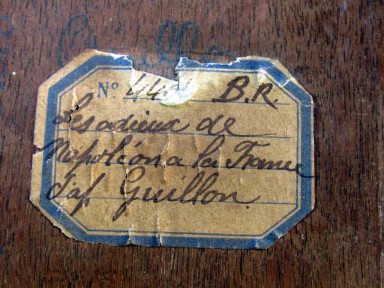 N° 44 B.R.
Les adieux de
Napoléon a la France
d'ap. Guillon.